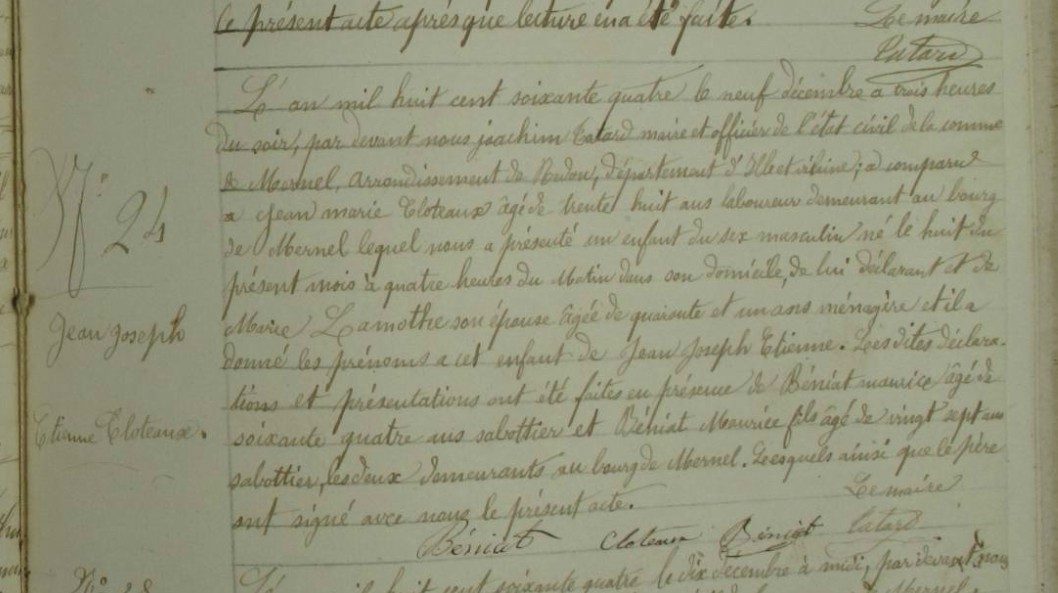 ce présent acte après que lecture en a été faite. Le maire
Tatard
L'an mil huit cent soixante quatre le neuf décembre a trois heures
du soir, par devant nous joachim Tatard maire et officier de l'état civil de la comme
de Mernel, arrondissement de Redon, département d'Ille et vilaine; a comparu
a jean marie Cloteaux âgé de trente huit ans laboureur demeurant au bourg
de Mernel lequel nous a présenté un enfant du sex masculin né le huit du
présent mois à quatre heures du Matin dans son domicile, de lui déclarant et de
Marie Lamothe son épouse âgée de quarante et un ans ménagère et il a
donné les prénoms a cet enfant de Jean Joseph Etienne. Lesdites déclara-
tions et présentations ont été faites en présence de Béniat maurice âgé de
soixante quatre ans sabottier et Béniat Maurice fils âgé de vingt sept ans
sabottier, les deux demeurants au bourg de Mernel. Lesquels ainsi que le père
ont signé avec nous le présent acte. Le maire
Béniat Cloteaux Béniat Tatard
N° 24
Jean Joseph
Etienne Cloteaux.
mil huit cent soixante quatre le dix décembre à midi, par devant nous
Mernel